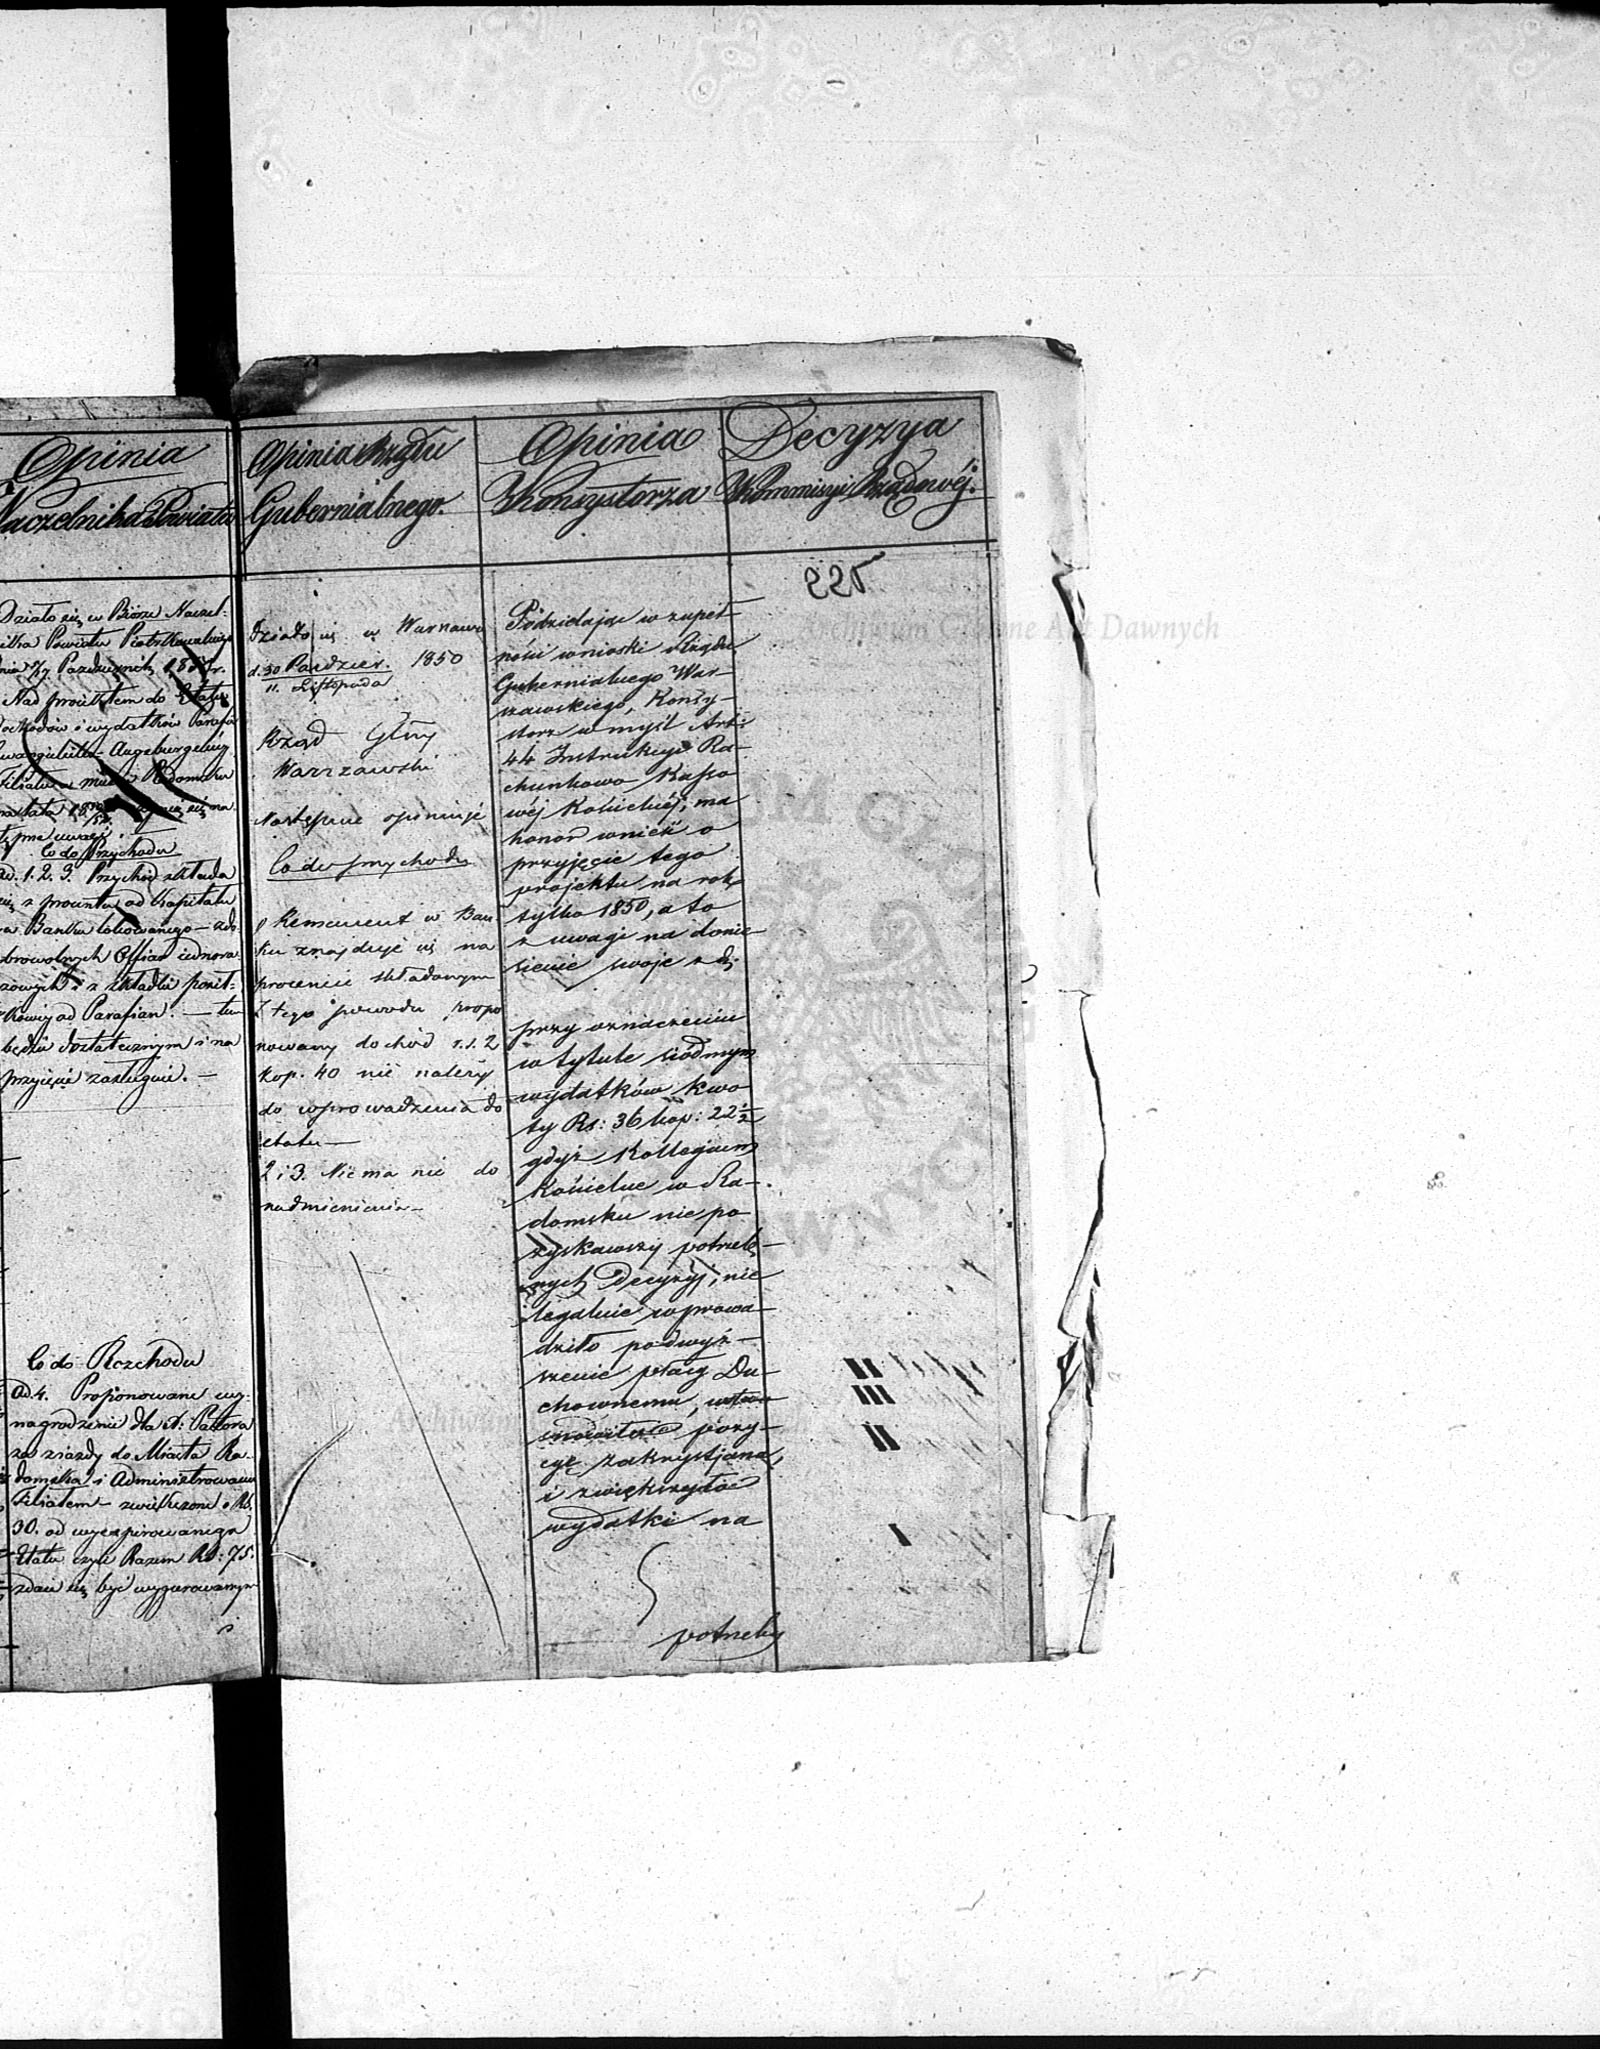 Opinia
Naczelnika Powiatu
Działo się w Biórze Naczel:
nika Powiatu Piotrkowskiego
dnia 7/19 Październik 1850 r.
Nad projektem do Etatu
dochodów i wydatków Parafii
Ewangelicko-Augsburgskiéj
Filialu w mieście Radomsku
na lata
stępne uwagi.
Co do Przychodu
Ad. 1. 2. 3. Przychód składa
się z procentu od Kapitału
w Banku lokowanego — z do-
browolnych Offiar jednora-
zowych i z składki
od Parafian. — ten
będzie dostatecznym i na
przyjęcie zasługuie. —
Co do Rozchodu
Ad. 4. Proponowane wy-
nagrodzenie dla X: Pastora
za zjazdy do Miasta Ra-
domska i Administrowanie
Filiałem — zwiększone o Rs.
30. od wyexpirowanego
Etatu czyli Razem Rs: 75.
zdaie się być wygurowanym
Opinia Rządu
Gubernialnego.
Działo się w Warszawie
d. 30 Paździer. 1850
11. Listopada
Rząd Glny
Warszawski
Następnie opiniuje
Co do przychodu
1 Remanent w Ban-
ku znajduje się na
procencie składanym
Z tego powodu propo
nowany dochód r.s. 2
kop. 40 nie należy
do wprowadzenia do
etatu —
2 i 3. Nie ma nic do
nadmienienia —
Opinia
Konsystorza
Podzielając w zupeł-
ności wnioski Rządu
Gubernialnego War-
szawskiego, Konsy-
storz w myśl Art:
44 Instrukcyi Ra-
chunkowo Kasso
wéj Kościelnéj, ma
honor wnieść o
przyjęcie tego
projektu na rok
tylko 1850, a to
z uwagi na donie-
sienie swoje z d.
przy oznaczeniu
w tytule siódmym
wydatków kwo
ty Rs: 36 kop: 22½
gdyż Kollegium
Kościelne w Ra-
domsku nie po
zyskawszy potrzeb-
nych Decyzyj, nie
legalnie wprowa-
dziło podwyż-
szenie płacy Du-
chownemu,
pozy-
cyę zakrystjana,
i zwiększyło
wydatki na
potrzeby
Decyzya
Kommisyi Rządowéj.
225
Archiwum Główne Akt Dawnych